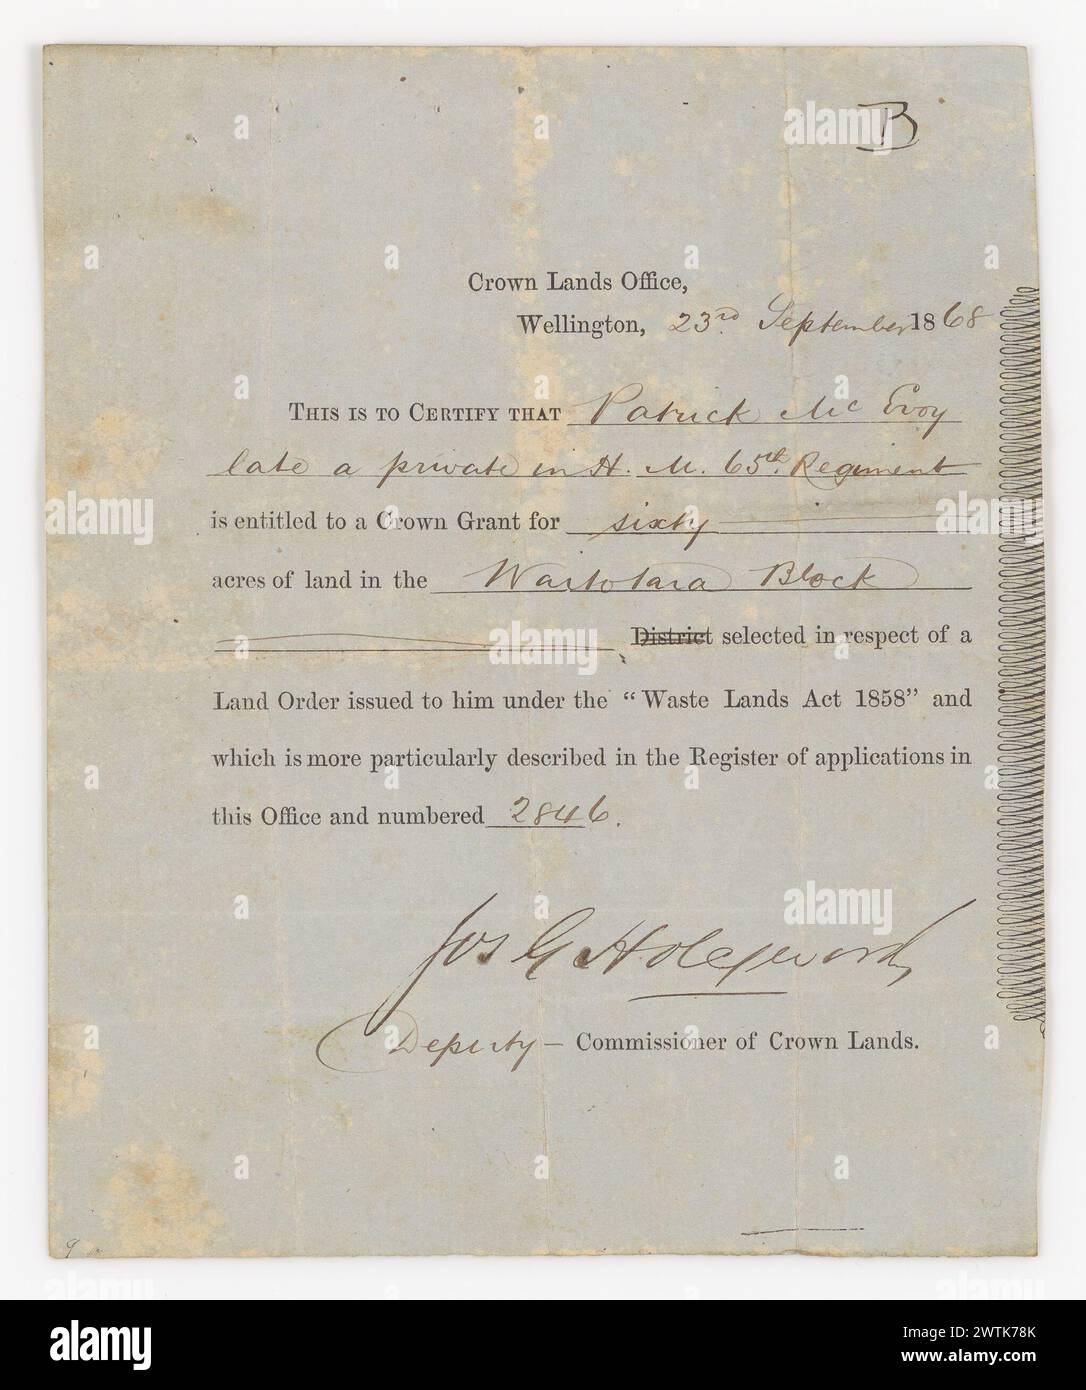 B
Crown Lands Office,
Wellington, 23rd September 1868
THIS IS TO CERTIFY THAT Patrick Mc Evoy
late a private in H. M. 65th Regiment
is entitled to a Crown Grant for sixty
acres of land in the Waitotara Block
District selected in respect of a
Land Order issued to him under the "Waste Lands Act 1858" and
which is more particularly described in the Register of applications in
this Office and numbered 2846.
Jos G Holdsworth
Deputy – Commissioner of Crown Lands.
9
alamy
Image ID: 2WTK78K
www.alamy.com